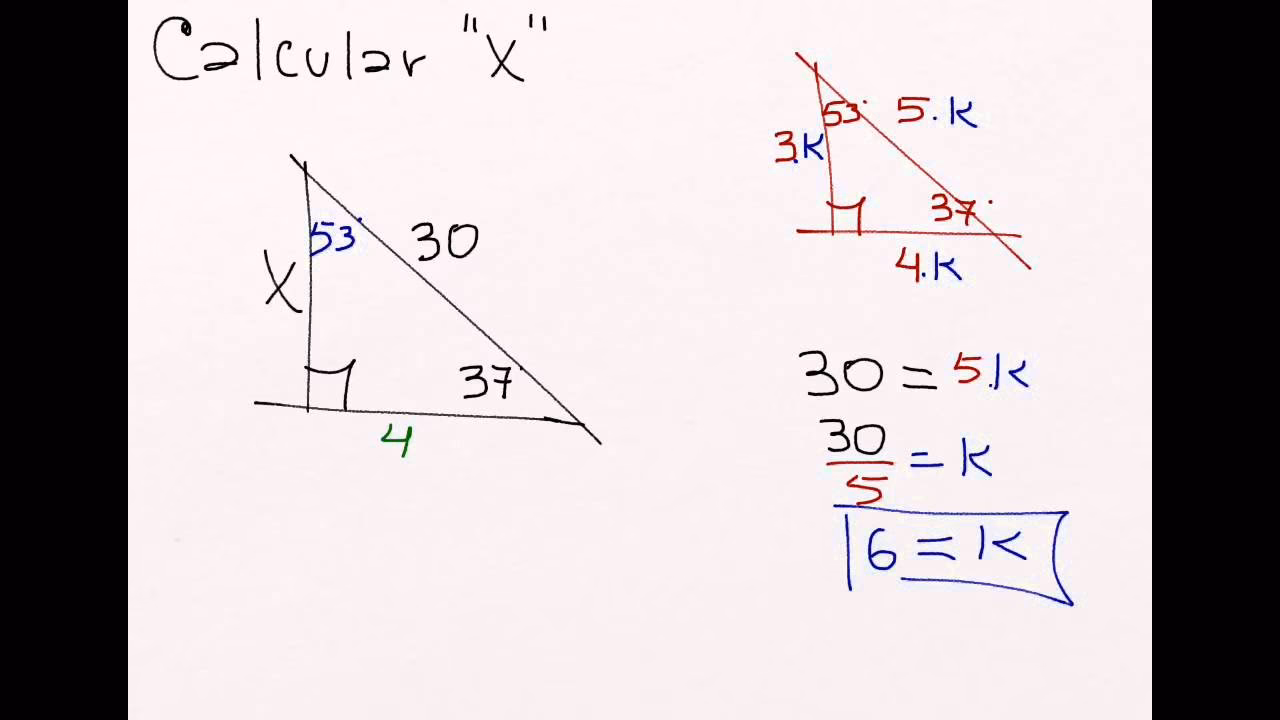 Calcular "X"
53°
30
X
37°
4
53°
5.K
3.K
37°
4.K
30 = 5.K
30/5 = K
6 = K